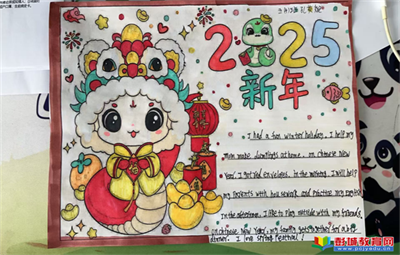 2025
新年
I had a fun winter holiday. I help my
mom make dumplings at home. on chinese new
Year I got red envelopes. In the morning, I will help
my parents with housework and practice my english
In the afternoon. I like to play outside with my friends
on chinese new Year, my family gets together for a big
dinner. I love spring festival!
彭城教育网
www.pcjyedu.cn